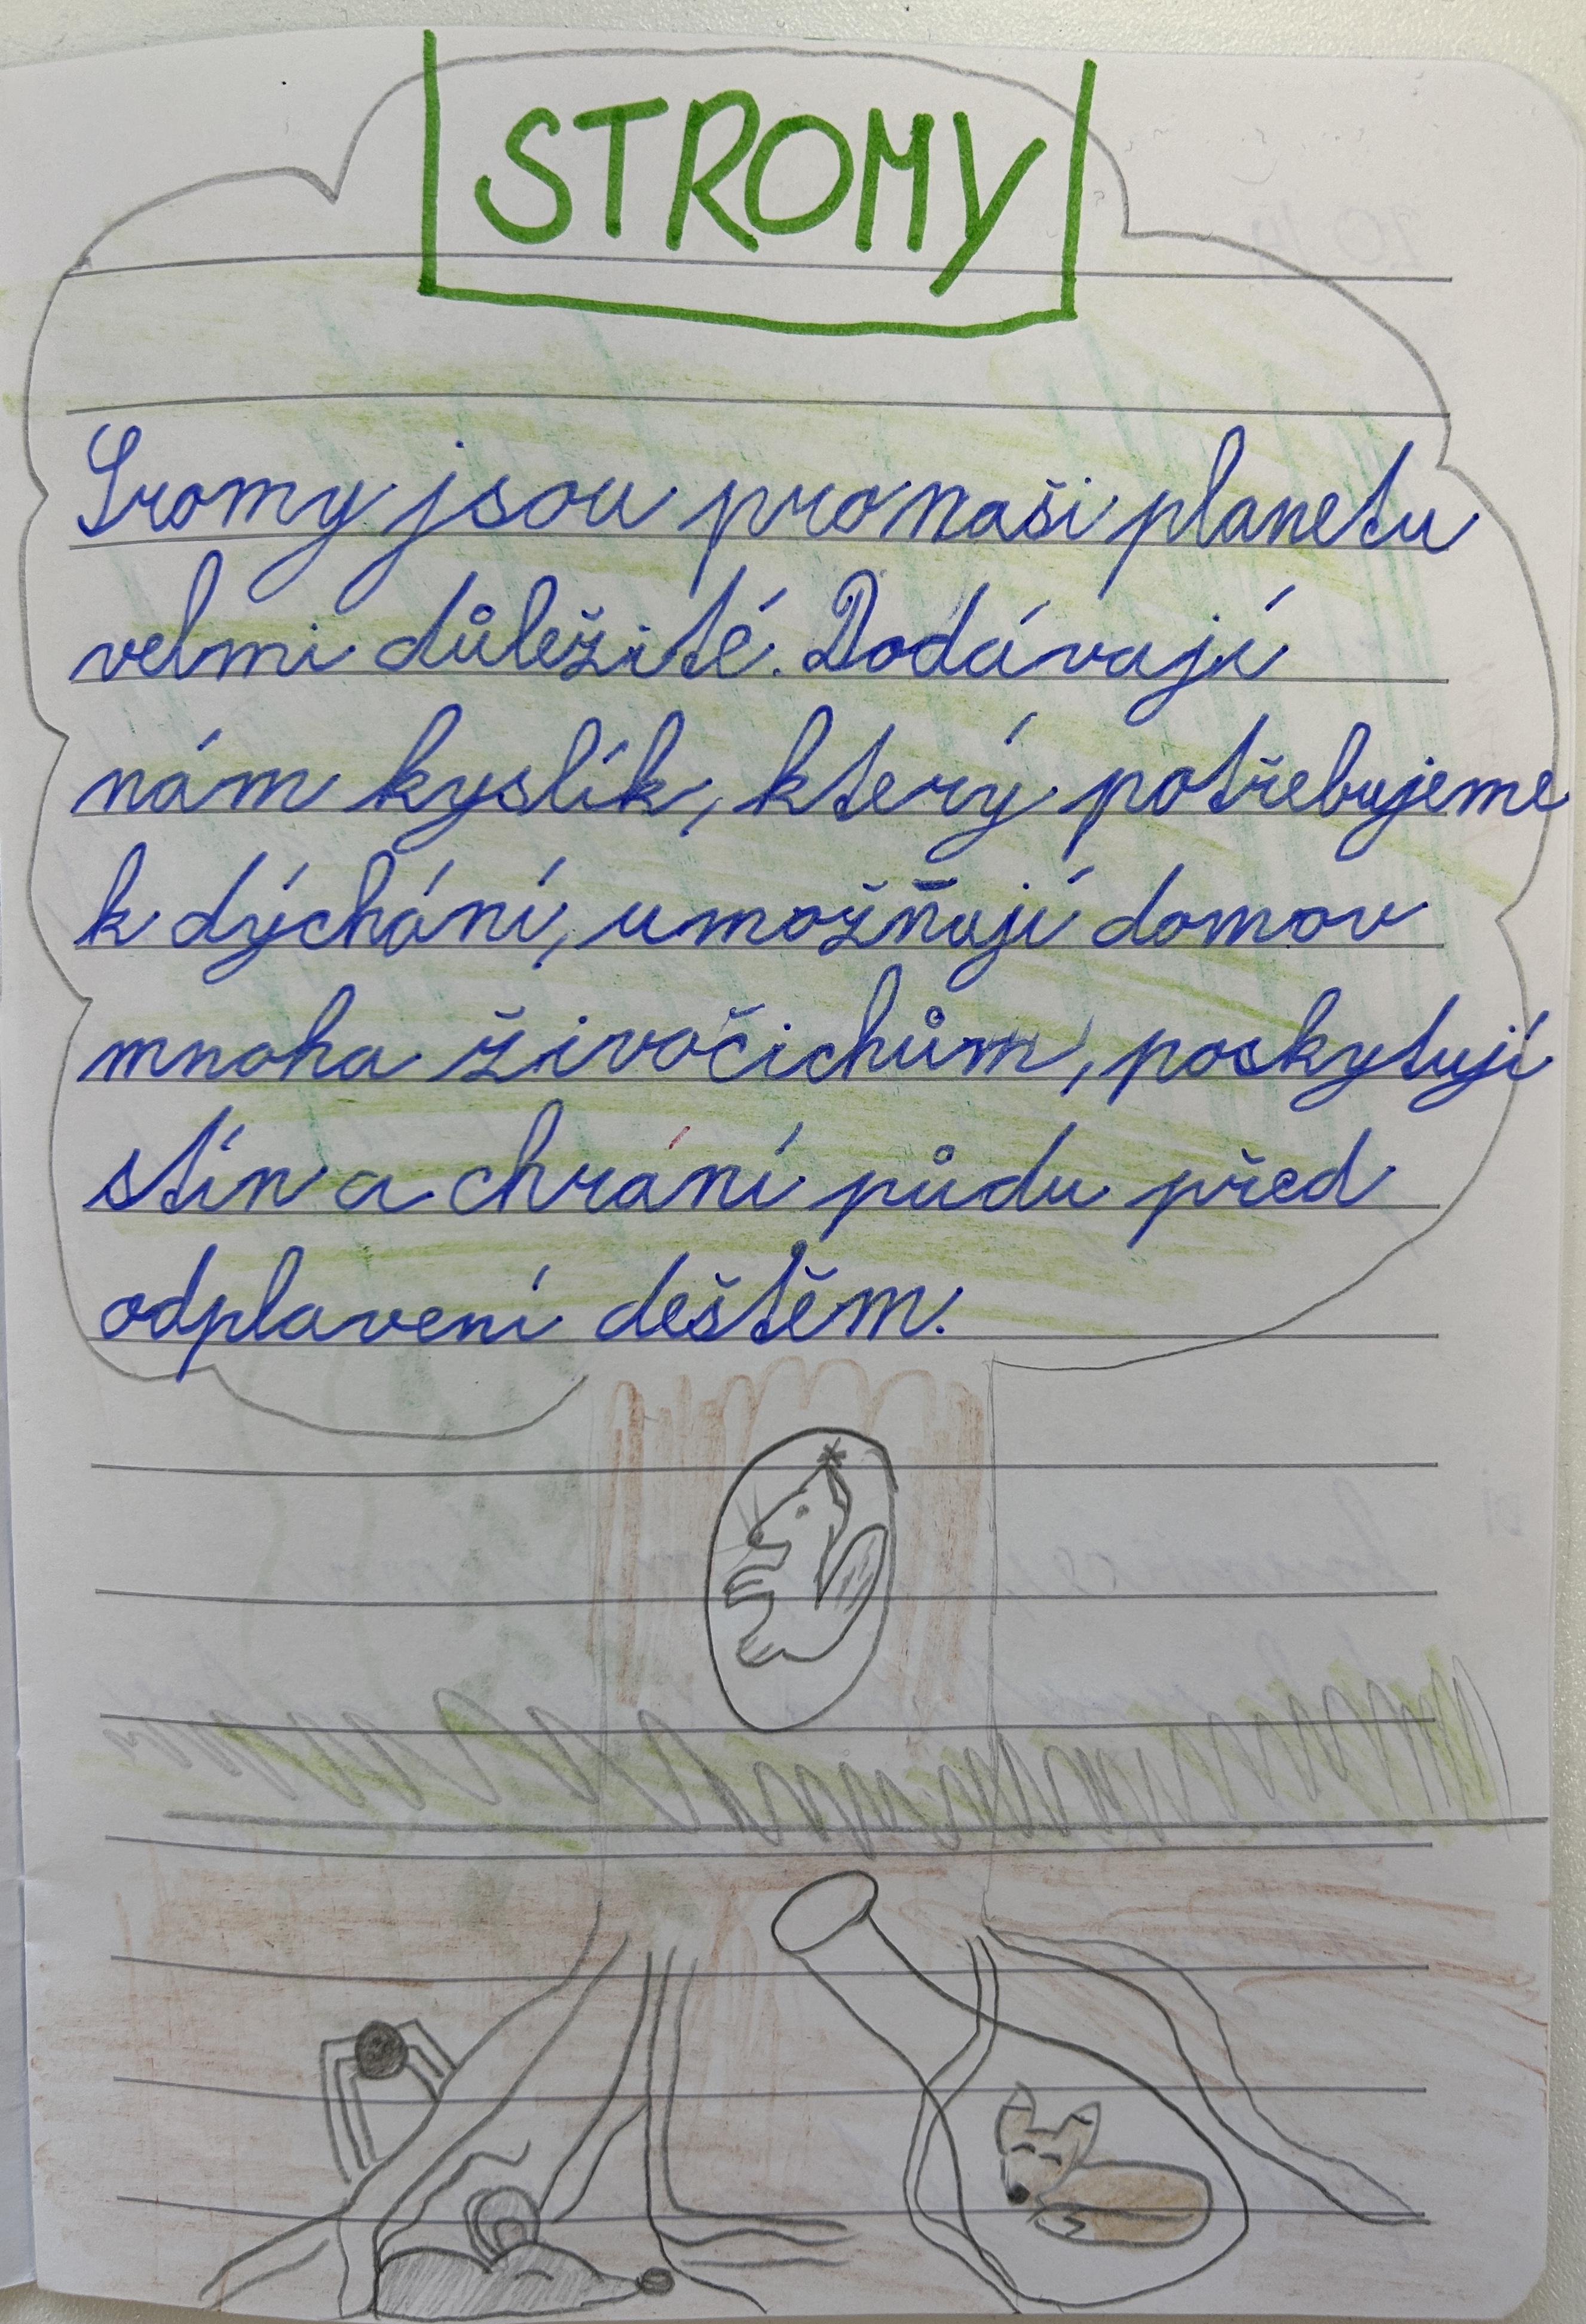 STROMY
Sromy jsou pro naši planetu
velmi důležité. Dodávají
nám kyslík, který potřebujeme
k dýchání, umožňují domov
mnoha živočichům, poskytují
stín a chrání půdu před
odplavení deštěm.